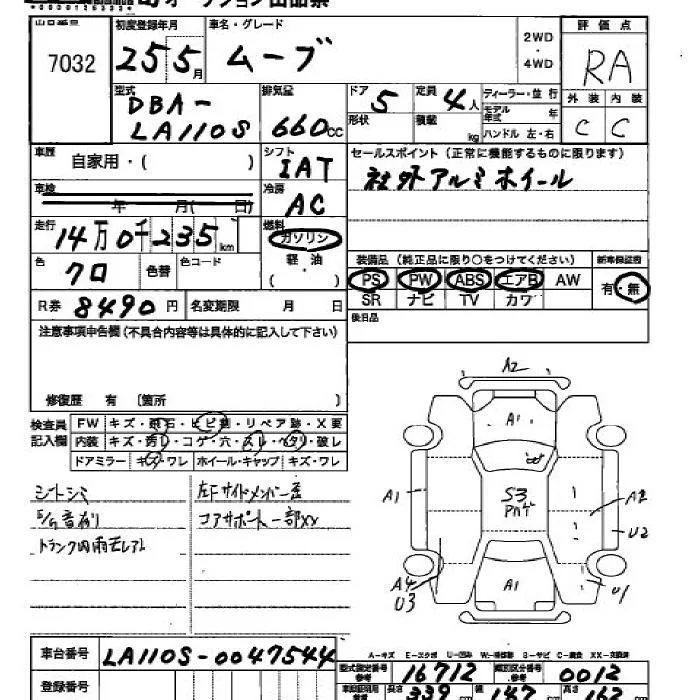 オークション出品票
出品番号 初度登録年月 車名・グレード 2WD・4WD 評価点
7032 25 5月 ムーブ RA
型式 DBA-LA110S 排気量 660cc ドア 5 形状 定員 4人 積載 kg ディーラー・並行 モデル年式 年 ハンドル 左・右 外装 C 内装 C
車歴 自家用・( ) シフト IAT セールスポイント (正常に機能するものに限ります)
車検 年 月( 日) 冷房 AC 社外アルミホイール
走行 14万0千235km 燃料 ガソリン
色 クロ 色替 色コード 軽油 ・( ) 装備品 (純正品に限り○をつけてください) 新車保証書
PS PW ABS エアB AW 有・無
R券 8490円 名変期限 月 日 SR ナビ TV カワ
注意事項申告欄(不具合内容等は具体的に記入して下さい) 後日品
修復歴 有 (箇所
検査員記入欄 FW キズ・飛石・ヒビ割・リペア跡・X要
内装 キズ・汚れ・コゲ・穴・スレ・ヘタリ・破レ
ドアミラー キズ・ワレ ホイール・キャップ キズ・ワレ
シートシミ 左Fサイドメンバー歪
E/G音有り コアサポート一部XX
トランク内雨モレアト
A2
A1
S3
A1 A2
U2
A4
U3 A1 U1
A-キズ E-エクボ U-凹み W-補修跡 S-サビ C-腐食 XX-交換済
車台番号 LA110S-0047544 型式指定番号 参考 16712 類別区分番号 参考 0012
登録番号 長さ 339cm 幅 147cm 高さ 162cm